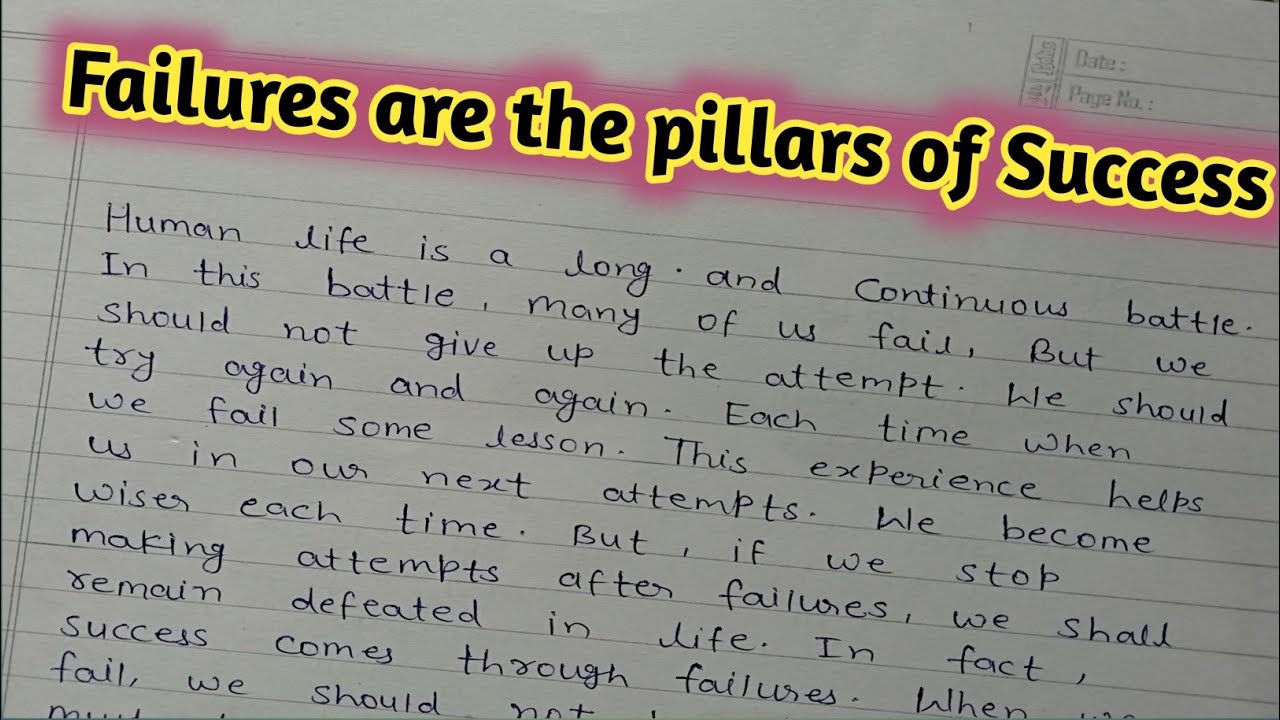 Failures are the pillars of Success
Date :
Page No. :
Human life is a long. and continuous battle.
In this battle, many of us fail, But we
should not give up the attempt. We should
try again and again. Each time when
we fail some lesson. This experience helps
us in our next attempts. We become
wiser each time. But, if we stop
making attempts after failures, we shall
remain defeated in life. In fact,
success comes through failures. When
fail, we should not